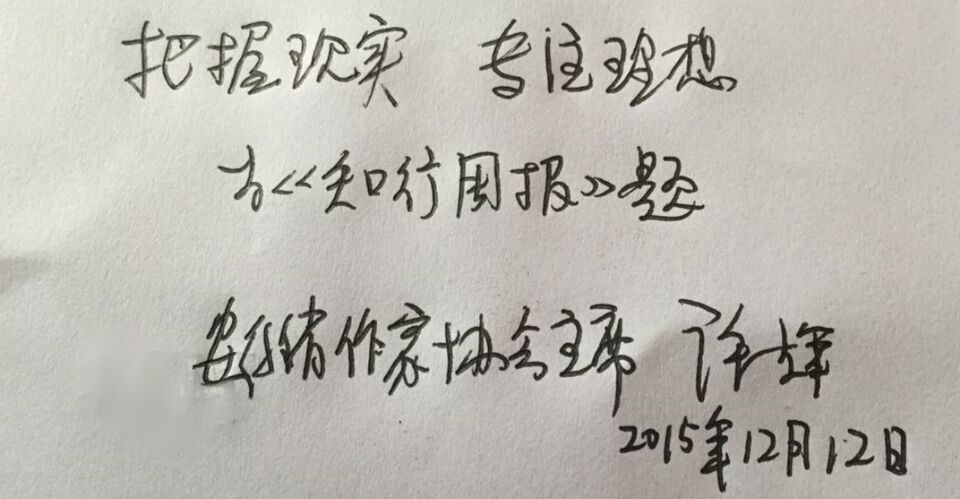 把握现实 专注理想
为《知行周报》题
安徽省作家协会主席 许辉
2015年12月12日